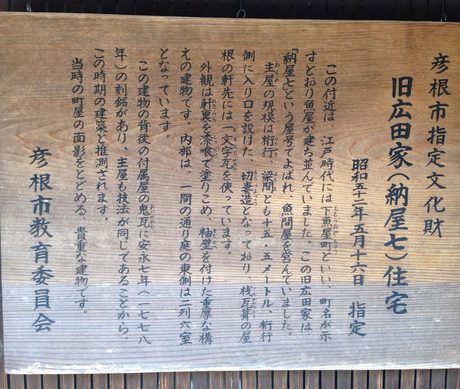 彦根市指定文化財
旧広田家(納屋七)住宅
昭和五十二年五月十六日　指定
この付近は、江戸時代には下魚屋町といい、町名が示
すとおり魚屋が建ち並んでいました。この旧広田家は、
「納屋七」という屋号でよばれ、魚問屋を営んでいました。
主屋の規模は桁行、梁間とも十五・五メートル、桁行
側に入り口を設けた、切妻造となっており、桟瓦葺の屋
根の軒先には一文字瓦を使っています。
外観は軒裏を漆喰で塗りこめ、袖壁を付けた重厚な構
えの建物です。内部は、一間の通り庭の東側は二列六室
となっています。
この建物の背後の付属屋の鬼瓦に安永七年(一七七八
年)の刻銘があり、主屋も技法が同じであることから、
この時期の建築と推測されます。
当時の町屋の面影をとどめる、貴重な建物です。
彦根市教育委員会